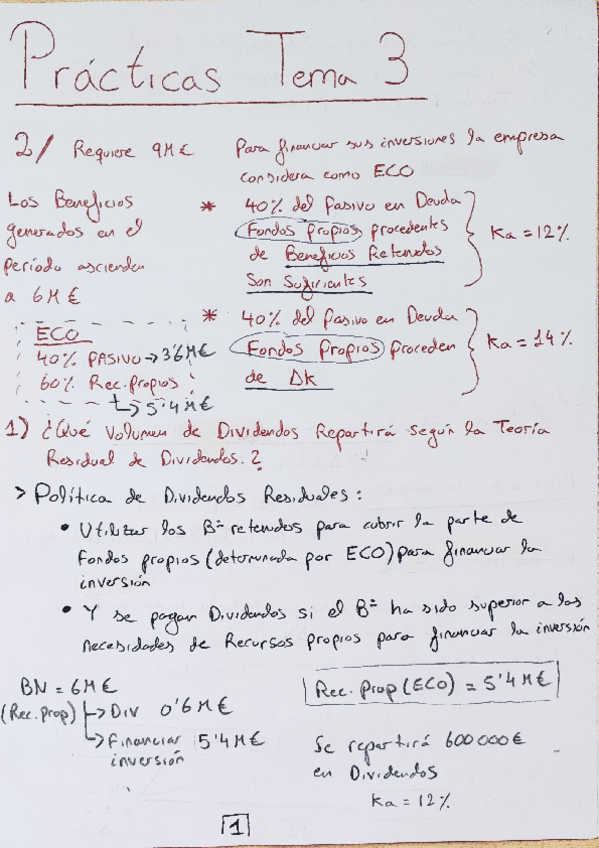 Prácticas Tema 3
2/ Requiere 9M€
Los Beneficios
generados en el
período ascienden
a 6M€
ECO
40% PASIVO → 3'6M€
60% Rec. Propios
↳ 5'4M€
Para financiar sus inversiones la empresa
considera como ECO
* 40% del pasivo en Deuda
Fondos propios procedentes
de Beneficios Retenidos
Son Suficientes
Ka = 12%
* 40% del pasivo en Deuda
Fondos Propios proceden
de Δk
Ka = 14%
1) ¿Qué Volumen de Dividendos Repartirá según la Teoría
Residual de Dividendos.?
> Política de Dividendos Residuales:
• Utilizar los Bº retenidos para cubrir la parte de
Fondos propios (determinada por ECO) para financiar la
inversión
• Y se pagan Dividendos si el Bº ha sido superior a las
necesidades de Recursos propios para financiar la inversión
BN = 6M€
(Rec. Prop) ↳ Div 0'6M€
↳ Financiar 5'4M€
inversión
Rec. Prop (ECO) = 5'4M€
Se repartirá 600000€
en Dividendos
Ka = 12%
1